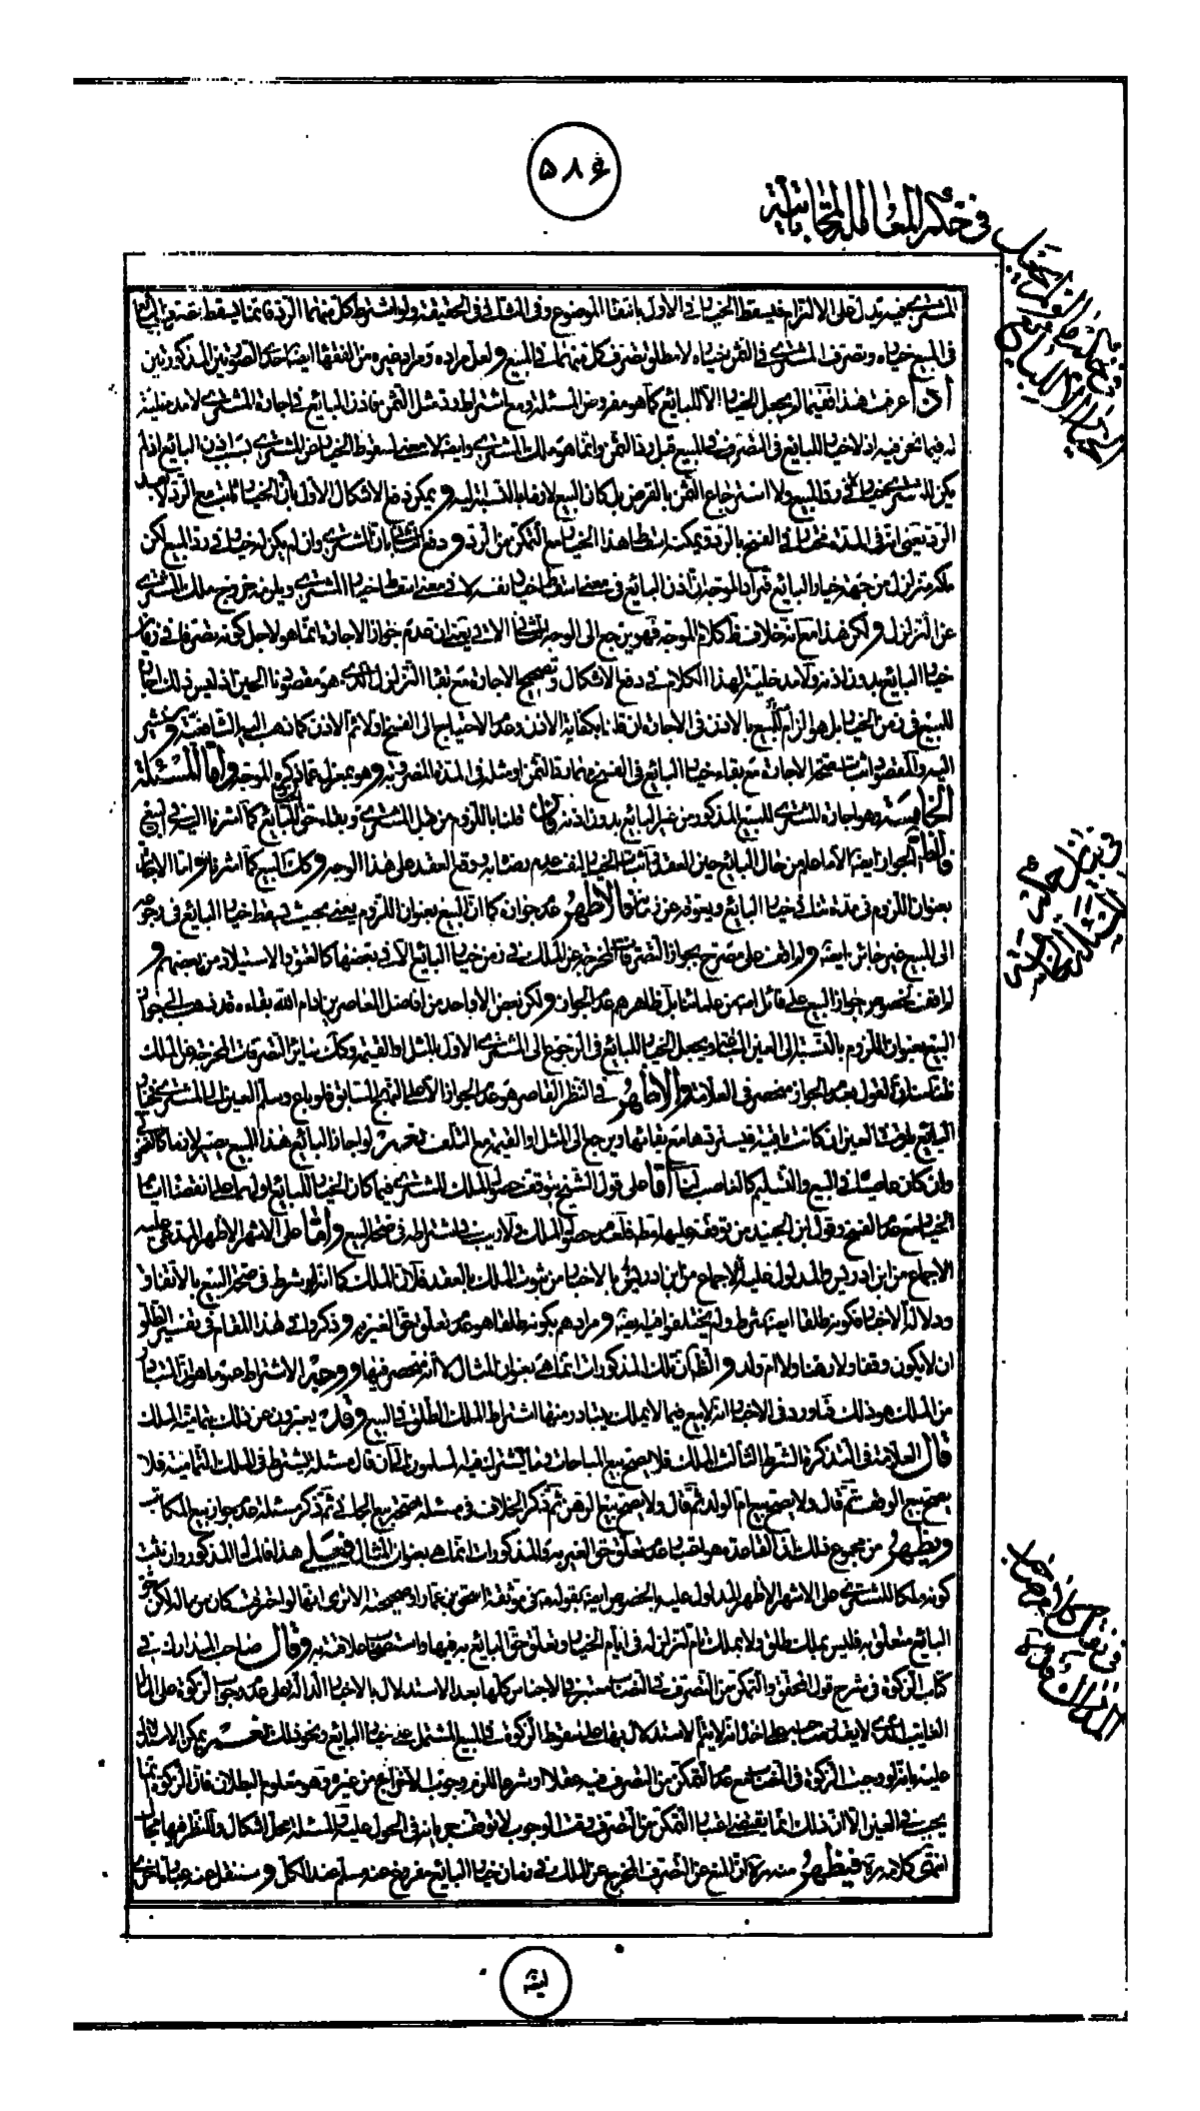 ۵۸۶
في حكم المعاملة المحاباتية
المشتري فيه يدل على الالتزام فيسقط الخيار في الاول بانتفاء الموضوع وفي الثاني في الحقيقة ولو اشترط كل منهما الرد فانما يسقط
في المبيع خياره وتصرف المشتري في الثمن خياره لا مطلق تصرف كل منهما في المبيع ولعل مراده ومراد غيره من الفقهاء ايضا احدى الصورتين المذكورتين
اذا عرفت هذا ففيما لم يجعل الخيار الا للبائع كما هو مفروض المسئلة ومع اشتراط رد مثل الثمن فاذن البائع في اجارة المشتري لا مدخلية
له فيما نحن فيه اذ لا خيار للبائع في التصرف في المبيع قبل رد الثمن وانما هو ملك المشتري وايضا لا معنى لسقوط الخيار من المشتري بسبب اذن البائع اذ لم
يكن للمشتري خيار في رد المبيع ولا استرجاع الثمن بالفرض بل كان البيع لازما بالنسبة اليه ويمكن دفع الاشكال الاول بان الخيار ثابت مع الرد لا بعد
الرد يعني انه في المدة مختار في الفسخ بالرد ويمكنه اسقاط هذا الخيار مع التمكن من الرد ودفع الثاني بان المشتري وان لم يكن له خيار في رد المبيع لكن
ملكه متزلزل من جهة خيار البائع فمراد الموجه ان اذن البائع في معنى اسقاط خيار نفسه لا في معنى اسقاط خيار المشتري ويلزمه خروج ملك المشتري
عن التزلزل ولكن هذا مع انه خلاف ظاهر كلام الموجه فهو يرجع الى الوجه الثاني الآتي يعني ان عدم جواز الاجارة انما هو لاجل كونه تصرفا في زمان
خيار البائع بدون اذنه ولا مدخلية لهذا الكلام في دفع الاشكال وتصحيح الاجارة مع بقاء التزلزل الذي هو مقصودنا
للمبيع في زمن الخيار بل هو الزام للبيع بالاذن في الاجارة ان قلنا بكفاية الاذن وعدم الاحتياج الى الفسخ اولا ثم الاذن كما ذهب اليه الشافعية وسنشير
اليه والمقصود اثبات صحة الاجارة مع بقاء خيار البائع في الفسخ اذا رد الثمن او مثله في المدة المضروبة وهو بمعزل عما ذكره الموجه واما المسئلة
الخامسة وهو اجارة المشتري للمبيع المذكور من غير البائع بدون اذنه فان قلنا باللزوم من قبل المشتري وبقاء حق البائع كما اشرنا اليه في البيع
فالظاهر الجواز ايضا الا ما علم من حال البائع حين العقد في اثبات الخيار لنفسه عدم رضائه بوقوع العقد على هذا الوجه وكذلك المبيع كما اشرنا واما الاجارة
بعنوان اللزوم في مدة مثل في خيار البائع وبعوض عن ذمته فالاظهر عدم جوازه كما ان البيع بعنوان اللزوم يعني بحيث يسقط خيار البائع في رجوعه
الى المبيع غير جائز ايضا ولم اقف على مصرح بجواز التصرفات المخرجة عن الملك في زمن خيار البائع الا في بعضها كالعتق والاستيلاد من بعضهم و
لم اقف بخصوص جواز البيع على قائل به من علمائنا بل ظاهرهم عدم الجواز ولكن بعض الاماجد من افاضل المعاصرين ادام الله بقاءه قد ذهب الى جواز
البيع بعنوان اللزوم بالنسبة الى العين ويجعل الخيار للبائع في الرجوع الى المشتري الاول بالمثل او القيمة وكذلك سائر التصرفات المخرجة عن الملك
القول بعدم الجواز منحصر في العلامة والاظهر في النظر القاصر هو عدم الجواز الا على النهج السابق فلو باع وسلم العين الى المشتري
البائع فان كانت العين باقية فيستردها مع بقائها ويرجع الى المثل او القيمة مع التلف نعم لو اجاز البائع هذا البيع يصير لازما كالفضولي
وان كان عاصيا في البيع والتسليم كالغاصب لنا اما على قول الشيخ بتوقف حصول الملك للمشتري فيما كان الخيار للبائع او لهما على انقضاء ايام
الخيار مع عدم الفسخ وقول ابن الجنيد من توقفه عليها مطلقا فلعدم حصول الملك ولا ريب في اشتراطه في صحة البيع واما على الاشهر الاظهر المدعى عليه
الاجماع من ابن ادريس والمدلول عليه بالاخبار من ثبوت الملك بالعقد فلان الملك كما انه شرط في صحة البيع بالاتفاق و
دلالة الاخبار فكونه طلقا ايضا شرط ولم يختلفوا فيه ايضا ومرادهم بكونه طلقا هو عدم تعلق حق الغير به وذكروا في هذا المقام في تفسير الطلق
ان لا يكون وقفا ولا رهنا ولا ام ولد والظاهر ان تلك المذكورات انما هي بعنوان المثال لا انه منحصر فيها ووجه الاشتراط
من الملك هو ذلك فما ورد في الاخبار انه لا بيع فيما لا يملك يتبادر منها اشتراط الملك الطلق في البيع وقد يعبرون عن ذلك بتمامية الملك
قال العلامة في التذكرة الشرط الثالث الملك فلا يصح بيع المباحات مما يشترك فيه المسلمون الى ان قال مسئلة يشترط في الملك التمامية فلا
يصح بيع الوقف ثم قال ولا يصح بيع ام الولد ثم قال ولا يصح بيع الرهن ثم ذكر الخلاف في مسئلة صحة بيع الجاني ثم ذكر مسئلة عدم جواز بيع المكاتب
ويظهر من مجموع ذلك ان القاعدة هو اعتبار عدم تعلق حق الغير به والمذكورات انما هي بعنوان المثال فنقول هذا المال المذكور وان ثبت
كونه ملكا للمشتري على الاشهر الاظهر المدلول عليه بالخصوص ايضا بقوله في موثقة اسحق بن عمار او صحيحته الا ترى انها لو احترقت كان من ماله لكن حق
البائع متعلق به فليس بملك طلق ولا بملك تام لتزلزله في ايام الخيار وتعلق حق البائع به فيها واستصحاب علاقته به وقال صاحب المدارك في
كتاب الزكوة في شرح قول المحقق والتمكن من التصرف في النصاب معتبر في الاجناس كلها بعد الاستدلال بالاخبار الدالة على عدم وجوب الزكوة على المال
الغائب الذي لا يقدر صاحبه على اخذه انه لا يتم الاستدلال بها على سقوط الزكوة في المبيع المشتمل على خيار البائع ونحو ذلك نعم يمكن الاستدلال
عليه بانه لو وجبت الزكوة في النصاب مع عدم التمكن من التصرف فيه عقلا او شرعا للزم وجوب الاخراج من غيره وهو معلوم البطلان فان الزكوة انما
يجب في العين الا ان ذلك انما يقتضي اعتبار التمكن من التصرف وقت الوجوب لا توقف جريانه في الحول عليه والمسئلة محل اشكال وللنظر فيها مجال
انتهى كلامه ره فيظهر منه ره ان المنع عن التصرف المخرج عن الملك في زمان خيار البائع مفروغ عنه مسلم عند الكل وسننقل عنه
في نقل كلام صاحب المدارك قدس سره
ايضا